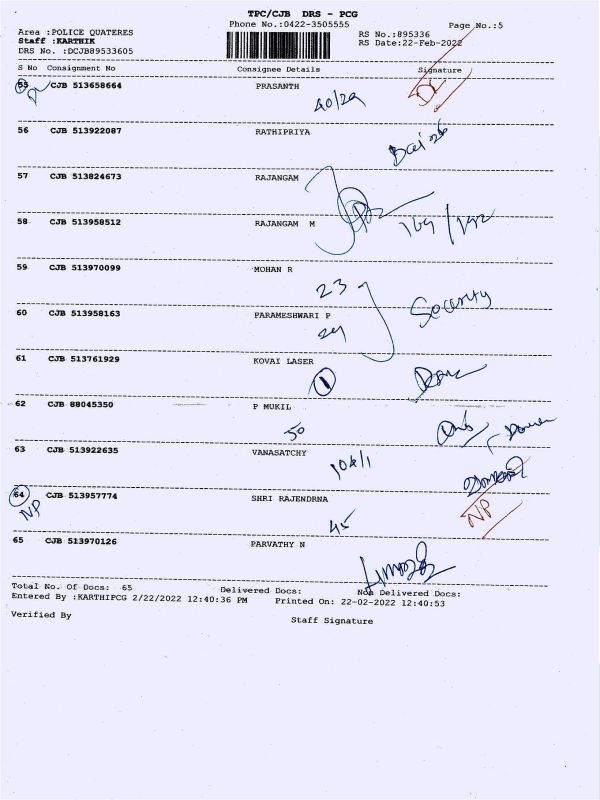 TPC/CJB DRS - PCG
Phone No.:0422-3505555
Page No.:5
Area :POLICE QUATERES
Staff :KARTHIK
DRS No. :DCJB89533605
RS No.:895336
RS Date:22-Feb-2022
S No Consignment No Consignee Details Signature
55 CJB 513658664 PRASANTH
56 CJB 513922087 RATHIPRIYA
57 CJB 513824673 RAJANGAM
58 CJB 513958512 RAJANGAM M
169/192
59 CJB 513970099 MOHAN R
23
60 CJB 513958163 PARAMESHWARI P
Socarity
24
61 CJB 513761929 KOVAI LASER
1
62 CJB 88045350 P MUKIL
50
63 CJB 513922635 VANASATCHY
104/1
64 CJB 513957774 SHRI RAJENDRNA
NP
NP
45
65 CJB 513970126 PARVATHY N
Total No. Of Docs: 65 Delivered Docs: Non Delivered Docs:
Entered By :KARTHIPCG 2/22/2022 12:40:36 PM Printed On: 22-02-2022 12:40:53
Verified By
Staff Signature